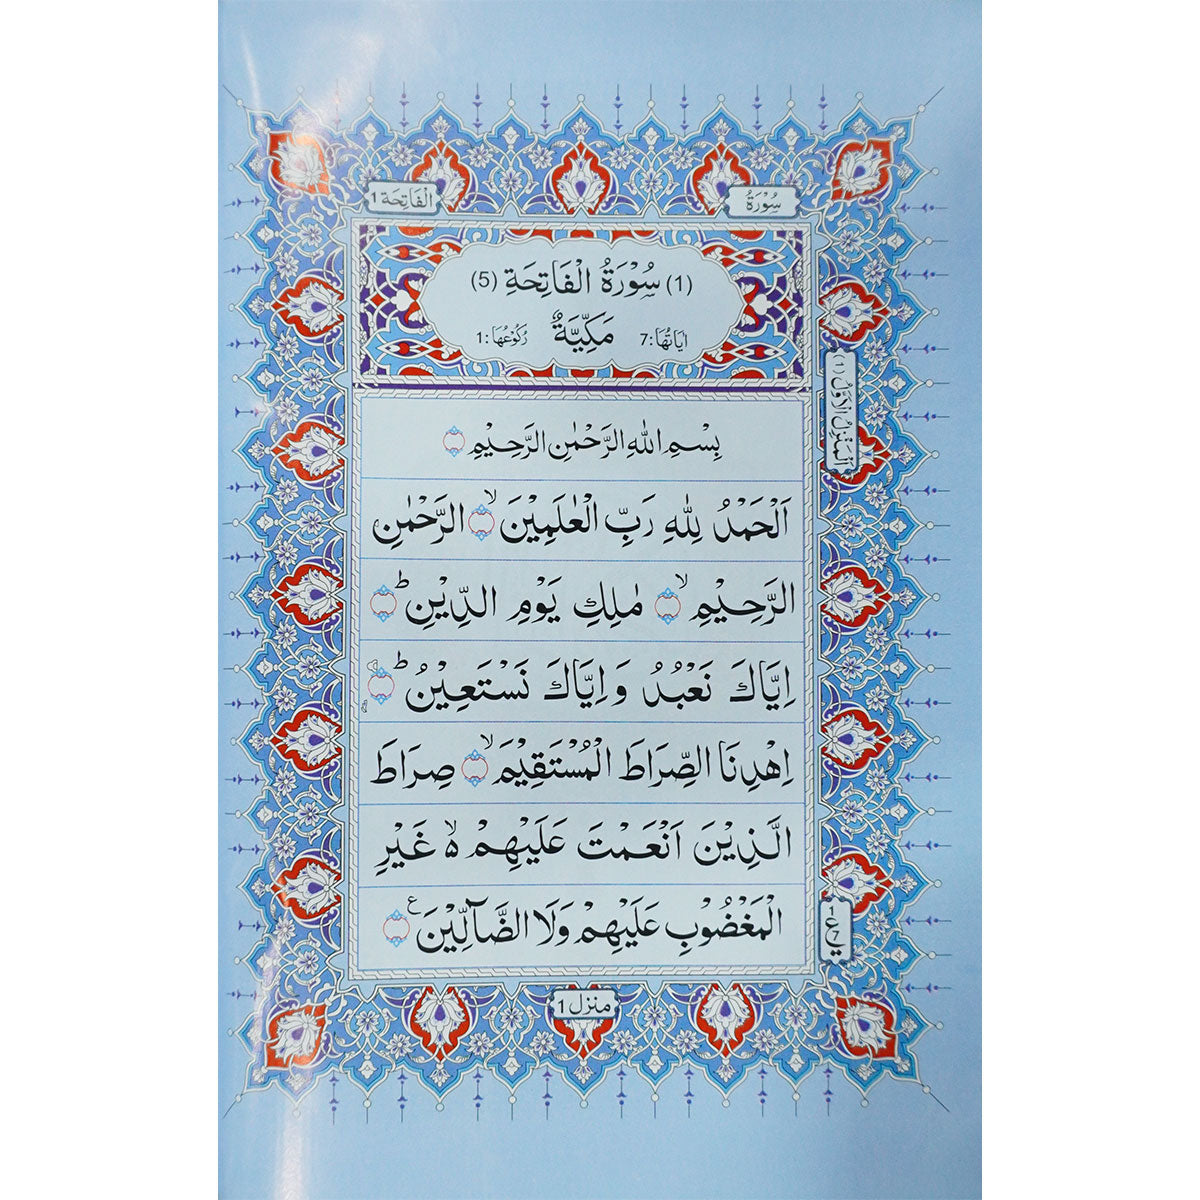 سُوْرَةُ
اَلْفَاتِحَة 1
(1) سُوْرَةُ الْفَاتِحَةِ (5)
اٰيَاتُهَا:7 مَكِّيَّةٌ رُكُوْعُهَا:1
اَلْمَنْزِلُ الْاَوَّلُ (1)
بِسْمِ اللهِ الرَّحْمٰنِ الرَّحِيْمِ
اَلْحَمْدُ لِلّٰهِ رَبِّ الْعٰلَمِيْنَ ۙ الرَّحْمٰنِ
الرَّحِيْمِ ۙ مٰلِكِ يَوْمِ الدِّيْنِ ؕ
اِيَّاكَ نَعْبُدُ وَ اِيَّاكَ نَسْتَعِيْنُ ؕ
اِهْدِنَا الصِّرَاطَ الْمُسْتَقِيْمَ ۙ صِرَاطَ
الَّذِيْنَ اَنْعَمْتَ عَلَيْهِمْ ۙ۬ غَيْرِ
الْمَغْضُوْبِ عَلَيْهِمْ وَلَا الضَّآلِّيْنَ ع
1 ع 7
منزل 1